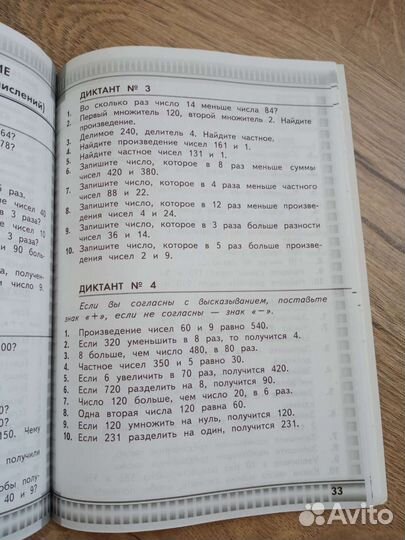 ИЕ
числений)
64?
78?
раз,
чисел 40
в 3 раза?
чисел 10
в 3 раза?
и 90 боль
а, получен-
число 9.
00?
0?
0?
150. Чему
получили
обы полу-
40 и 9?
ДИКТАНТ № 3
1. Во сколько раз число 14 меньше числа 84?
2. Первый множитель 120, второй множитель 2. Найдите
произведение.
3. Делимое 240, делитель 4. Найдите частное.
4. Найдите произведение чисел 161 и 1.
5. Найдите частное чисел 131 и 1.
6. Запишите число, которое в 8 раз меньше суммы
чисел 420 и 380.
7. Запишите число, которое в 4 раза меньше частного
чисел 88 и 22.
8. Запишите число, которое в 12 раз меньше произве-
дения чисел 4 и 24.
9. Запишите число, которое в 3 раза больше разности
чисел 36 и 14.
10. Запишите число, которое в 5 раз больше произве-
дения чисел 2 и 9.
ДИКТАНТ № 4
Если вы согласны с высказыванием, поставьте
знак «+», если не согласны — знак «−».
1. Произведение чисел 60 и 9 равно 540.
2. Если 320 уменьшить в 8 раз, то получится 4.
3. 8 больше, чем число 480, в 80 раз.
4. Частное чисел 350 и 5 равно 30.
5. Если 6 увеличить в 70 раз, получится 420.
6. Если 720 разделить на 8, получится 90.
7. Число 120 больше, чем число 20, в 6 раз.
8. Одна вторая числа 120 равна 60.
9. Если 120 умножить на нуль, получится 120.
10. Если 231 разделить на один, получится 231.
33
Avito